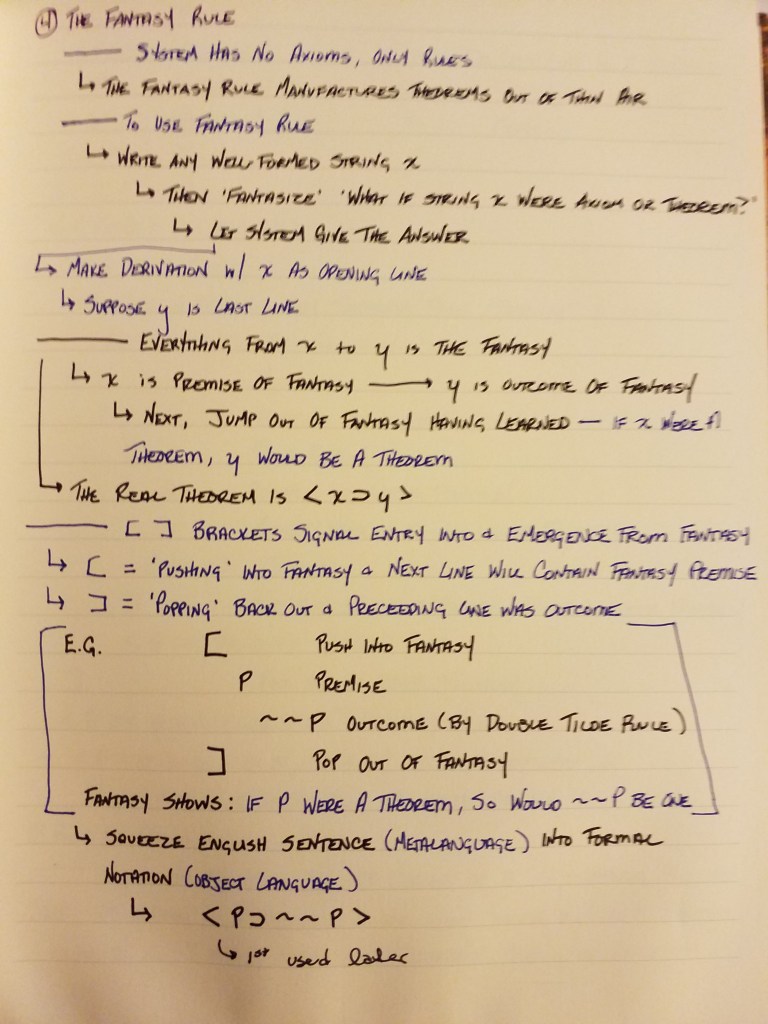 ④ THE FANTASY RULE
— SYSTEM HAS NO AXIOMS, ONLY RULES
↳ THE FANTASY RULE MANUFACTURES THEOREMS OUT OF THIN AIR
— TO USE FANTASY RULE
↳ WRITE ANY WELL FORMED STRING x
↳ THEN 'FANTASIZE' 'WHAT IF STRING x WERE AXIOM OR THEOREM?'
↳ LET SYSTEM GIVE THE ANSWER
↳ MAKE DERIVATION W/ x AS OPENING LINE
↳ SUPPOSE y IS LAST LINE
— EVERYTHING FROM x TO y IS THE FANTASY
↳ x IS PREMISE OF FANTASY ⟶ y IS OUTCOME OF FANTASY
↳ NEXT, JUMP OUT OF FANTASY HAVING LEARNED — IF x WERE A
THEOREM, y WOULD BE A THEOREM
↳ THE REAL THEOREM IS <x⊃y>
— [ ] BRACKETS SIGNAL ENTRY INTO & EMERGENCE FROM FANTASY
↳ [ = 'PUSHING' INTO FANTASY & NEXT LINE WILL CONTAIN FANTASY PREMISE
↳ ] = 'POPPING' BACK OUT & PRECEEDING LINE WAS OUTCOME
E.G. [ PUSH INTO FANTASY
P PREMISE
~~P OUTCOME (BY DOUBLE TILDE RULE)
] POP OUT OF FANTASY
FANTASY SHOWS: IF P WERE A THEOREM, SO WOULD ~~P BE ONE
↳ SQUEEZE ENGLISH SENTENCE (METALANGUAGE) INTO FORMAL
NOTATION (OBJECT LANGUAGE)
↳ <P⊃~~P>
↳ 1st used later